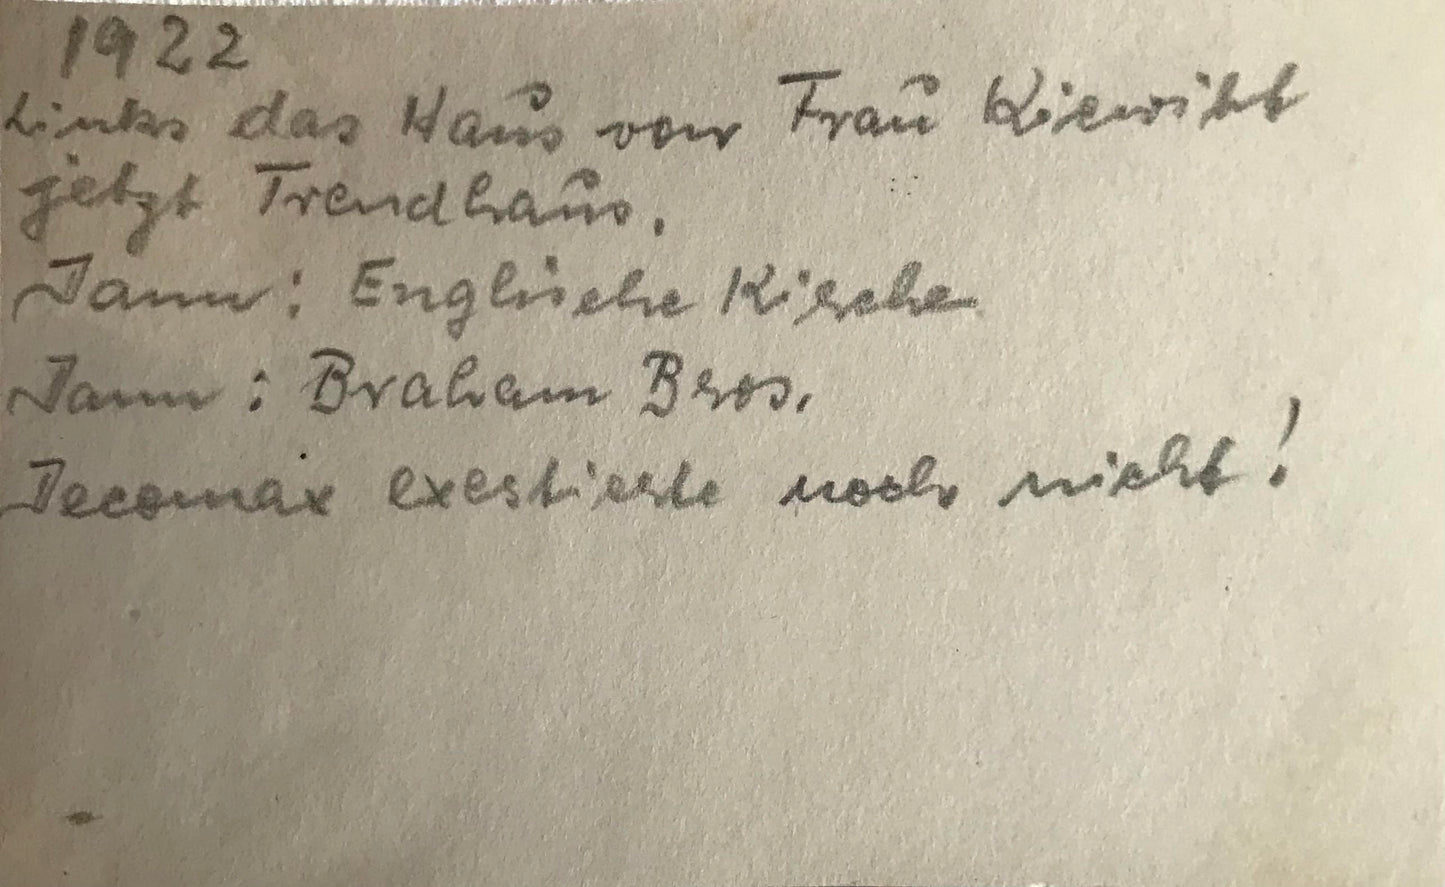 1922
Links das Haus von Frau Kiewitt
jetzt Trendhaus.
Dann: Englische Kirche
Dann: Braham Bros.
Jecomax exestierte noch nicht!